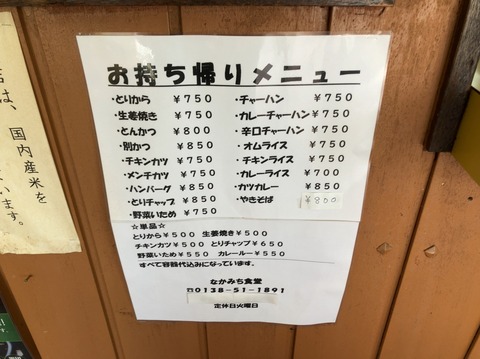 お持ち帰りメニュー
・とりから ￥７５０
・生姜焼き ￥７５０
・とんかつ ￥８００
・別かつ ￥８５０
・チキンカツ ￥７５０
・メンチカツ ￥７５０
・ハンバーグ ￥８５０
・とりチャップ ￥８５０
・野菜いため ￥７５０
・チャーハン ￥７５０
・カレーチャーハン ￥７５０
・辛口チャーハン ￥７５０
・オムライス ￥７５０
・チキンライス ￥７５０
・カレーライス ￥７００
・カツカレー ￥８５０
・やきそば ￥８００
☆単品☆
とりから￥５００ 生姜焼き￥５００
チキンカツ￥５００ とりチャップ￥６５０
野菜いため￥５５０ カレールー￥５５０
すべて容器代込みになっています。
なかみち食堂
☎０１３８-５１-１８９１
定休日火曜日
は、国内産米を
います。